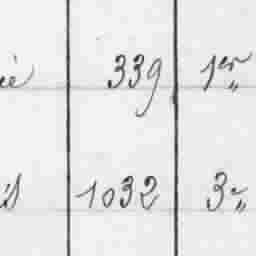 339 1er
1032 3e